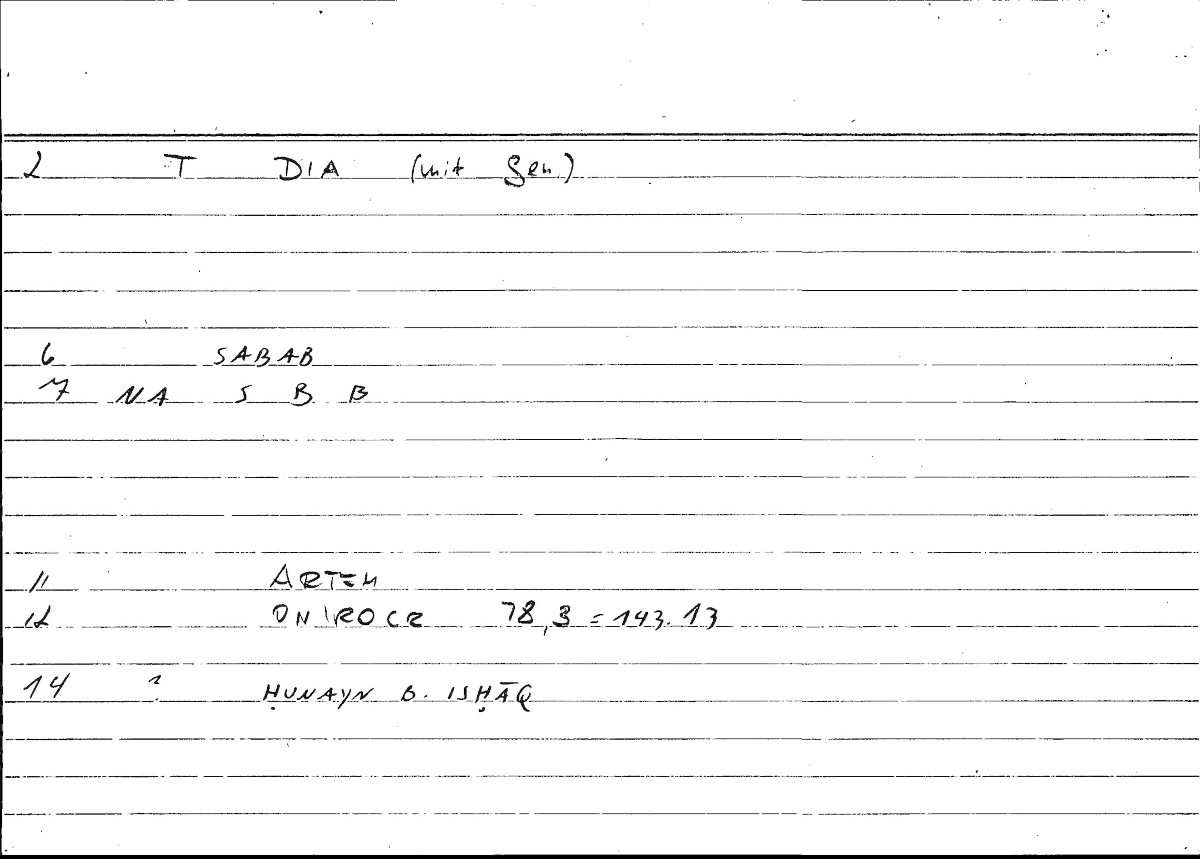 2 T DIA (mit Gen.)
6 SABAB
7 NA S B B
11 ARTEM
12 ONIROCR 78,3 = 143.13
14 ? ḤUNAYN B. ISḤĀQ